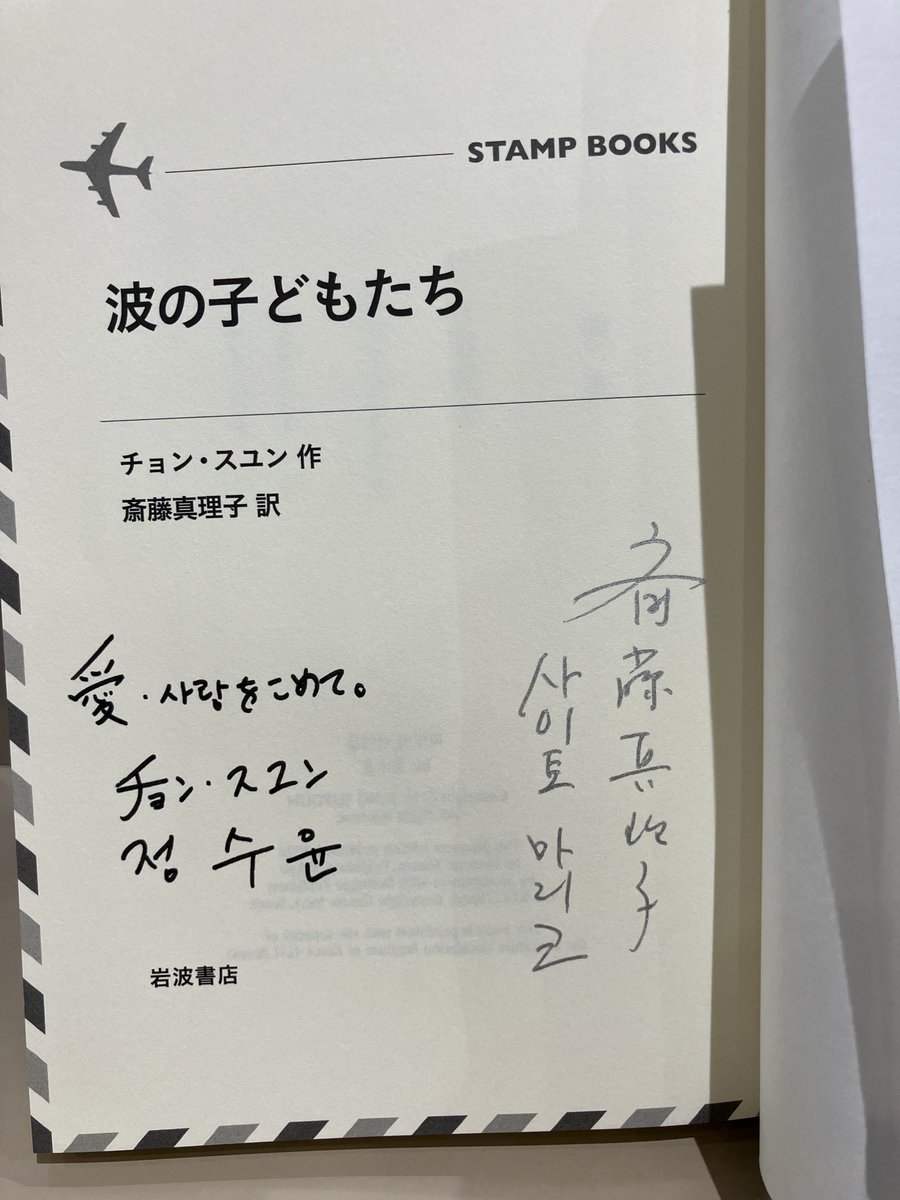 STAMP BOOKS
波の子どもたち
チョン・スユン 作
斎藤真理子 訳
愛・사랑をこめて。
チョン・スユン
정 수 윤
斎藤真理子
사이토 마리코
岩波書店